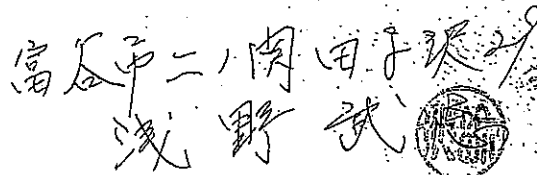 富谷市二ノ関田子沢29
浅野武